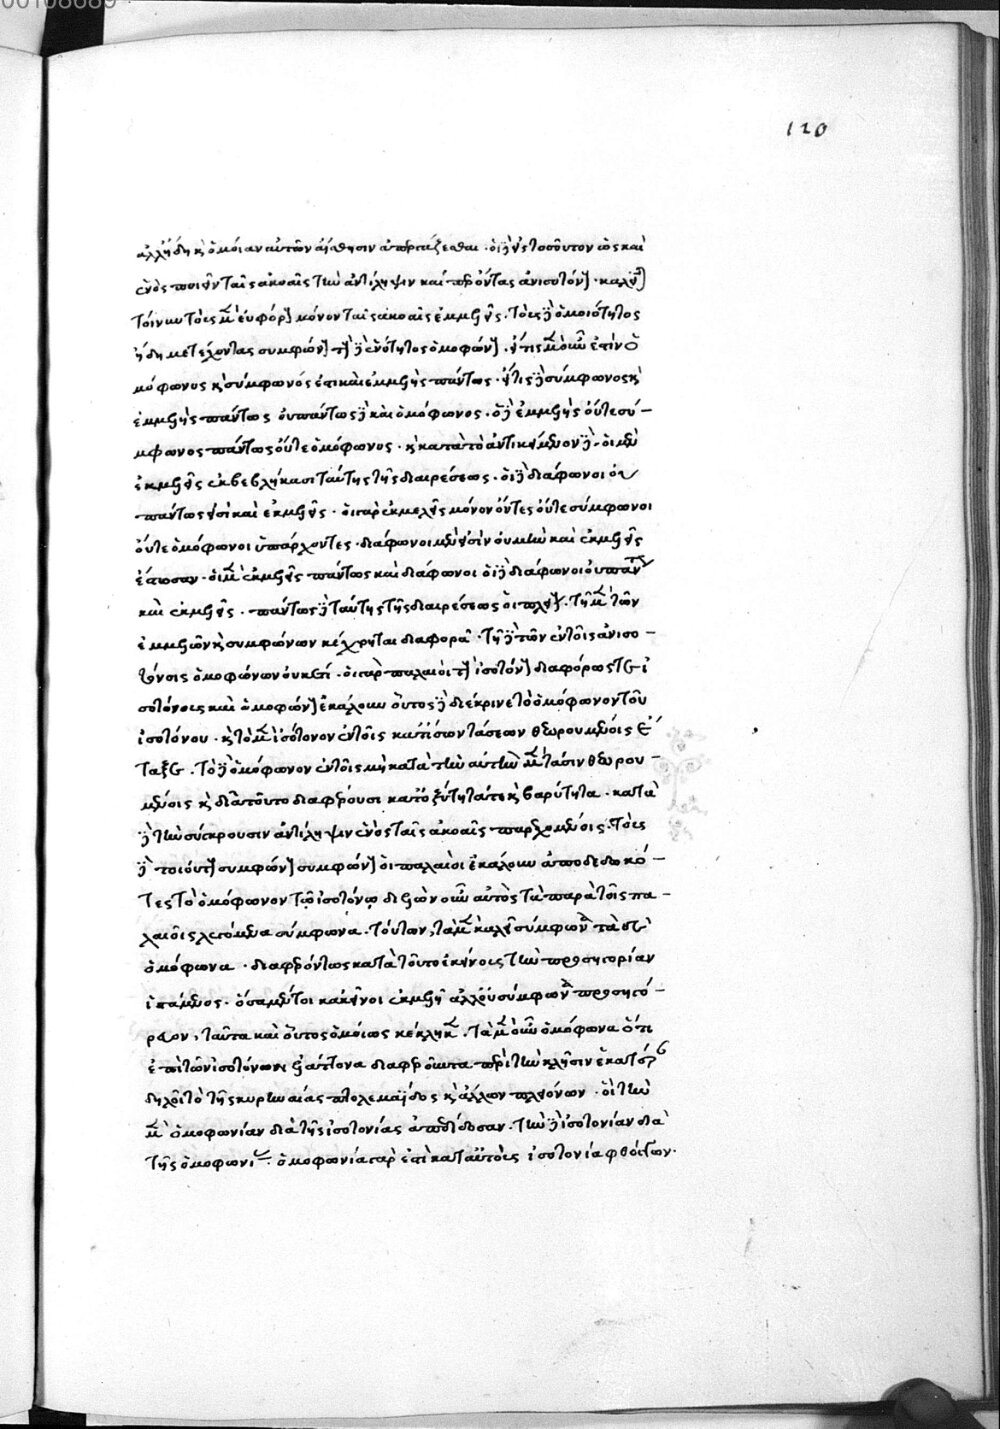 120
ἀλλήδη κ̀ ὁμοίαν αὐτῶν αἴσθησιν
ἑνὸς ποιεῖν ταῖς ἀκοαῖς τὴν ἀντίληψιν καί
τοίνυν τοὺς μὲν εὐφόρ μόνον ταῖς ἀκοαῖς ἐμμελεῖς. τοὺς δὲ ὁμοιότητος
ἤδη μετέχοντας συμφών τ δὲ ἑνότητος ὁμοφών. εἴ τις μὲν οὖν ἐστὶν ὁ
μόφωνος κ̀ σύμφωνός ἐστι καὶ ἐμμελὴς πάντως. εἴ τις δὲ σύμφωνος κ̀
ἐμμελὴς πάντως οὐ πάντως δὲ καὶ ὁμόφωνος. ὁ δὲ ἐμμελὴς οὔτε σύ-
μφωνος πάντως οὔτε ὁμόφωνος. κ̀ κατὰ τὸ ἀντικείμενον δὲ. οἱ μὲν
ἐκμελεῖς ἐκβεβλήκασι ταύτης τῆς διαιρέσεως. οἱ δὲ διάφωνοι οὐ
πάντως εἰσὶ καὶ ἐκμελεῖς. οἱ γὰρ ἐκμελεῖς μόνον ὄντες οὔτε σύμφωνοι
οὔτε ὁμόφωνοι ὑπάρχοντες. διάφωνοι μὲν εἰσὶν οὐ μὴν καὶ ἐκμελεῖς
ἔστωσαν. οἱ μὲν ἐκμελεῖς πάντως καὶ διάφωνοι οἱ δὲ διάφωνοι οὐ παντ
καὶ ἐκμελεῖς. πάντως δὲ ταύτης τῆς διαιρέσεως οἱ τῇ μὲν τῶν
ἐμμελῶν κ̀ συμφώνων κέχρηται διαφορᾷ. τῇ δὲ τῶν ἐν τοῖς ἀνισο-
τόνοις ὁμοφώνων οὐκέτι. οἱ γὰρ παλαιοὶ τ ἰσοτόν διαφόρως τε ἰ
σοτόνους καὶ ὁμοφών ἐκάλουν οὗτος δὲ διέκρινε τὸ ὁμόφωνον τοῦ
ἰσοτόνου. κ̀ τὸ μὲν ἰσότονον ἐν τοῖς κατ' ἴσων τάσεων θεωρουμένοις ἔ
ταξε. τὸ δὲ ὁμόφωνον ἐν τοῖς μὴ κατὰ τὴν αὐτὴν μὲν τάσιν θεωρου-
μένοις κ̀ διὰ τοῦτο διαφέρουσι κατ' ὀξύτητά τε κ̀ βαρύτητα. κατὰ
δὲ τὴν σύγκρουσιν ἀντίληψιν ἑνὸς ταῖς ἀκοαῖς παρεχομένοις. τοὺς
δὲ τοιούτ συμφών συμφών οἱ παλαιοὶ ἐκάλουν ἀποδεδωκό-
τες τὸ ὁμόφωνον τῷ ἰσοτόνῳ οὖν αὐτὸς τὰ παρὰ τοῖς πα-
λαιοῖς λεγόμενα σύμφωνα. τούτων, τὰ μὲν καλεῖ σύμφων τὰ δὲ
ὁμόφωνα. διαφερόντως κατὰ τοῦτο ἐκείνοις τὴν προσηγορίαν
ἱστάμενος. ὅσα μέντοι κἀκεῖνοι ἐκμελῆ ἀλλ' οὐ σύμφων προσηγό-
ρευον, ταῦτα καὶ οὗτος ὁμοίως κέκληκ. τὰ μὲν οὖν ὁμόφωνα ὅτι
ἐπὶ τῶν ἰσοτόνων ἔταττον διαφέροντα περὶ τὴν κλῆσιν ἑκατέρ
δηλοῖ τὸ τῆς κυρηναίας πτολεμαΐδος κ̀ ἄλλων πλειόνων. οἳ τὴν
μὲν ὁμοφωνίαν διὰ τῆς ἰσοτονίας ἀπεδίδοσαν. τὴν δὲ ἰσοτονίαν διὰ
τῆς ὁμοφωνί. ὁμοφωνία γὰρ ἐστὶ κατ' αὐτοὺς ἰσοτονία φθόγγων.